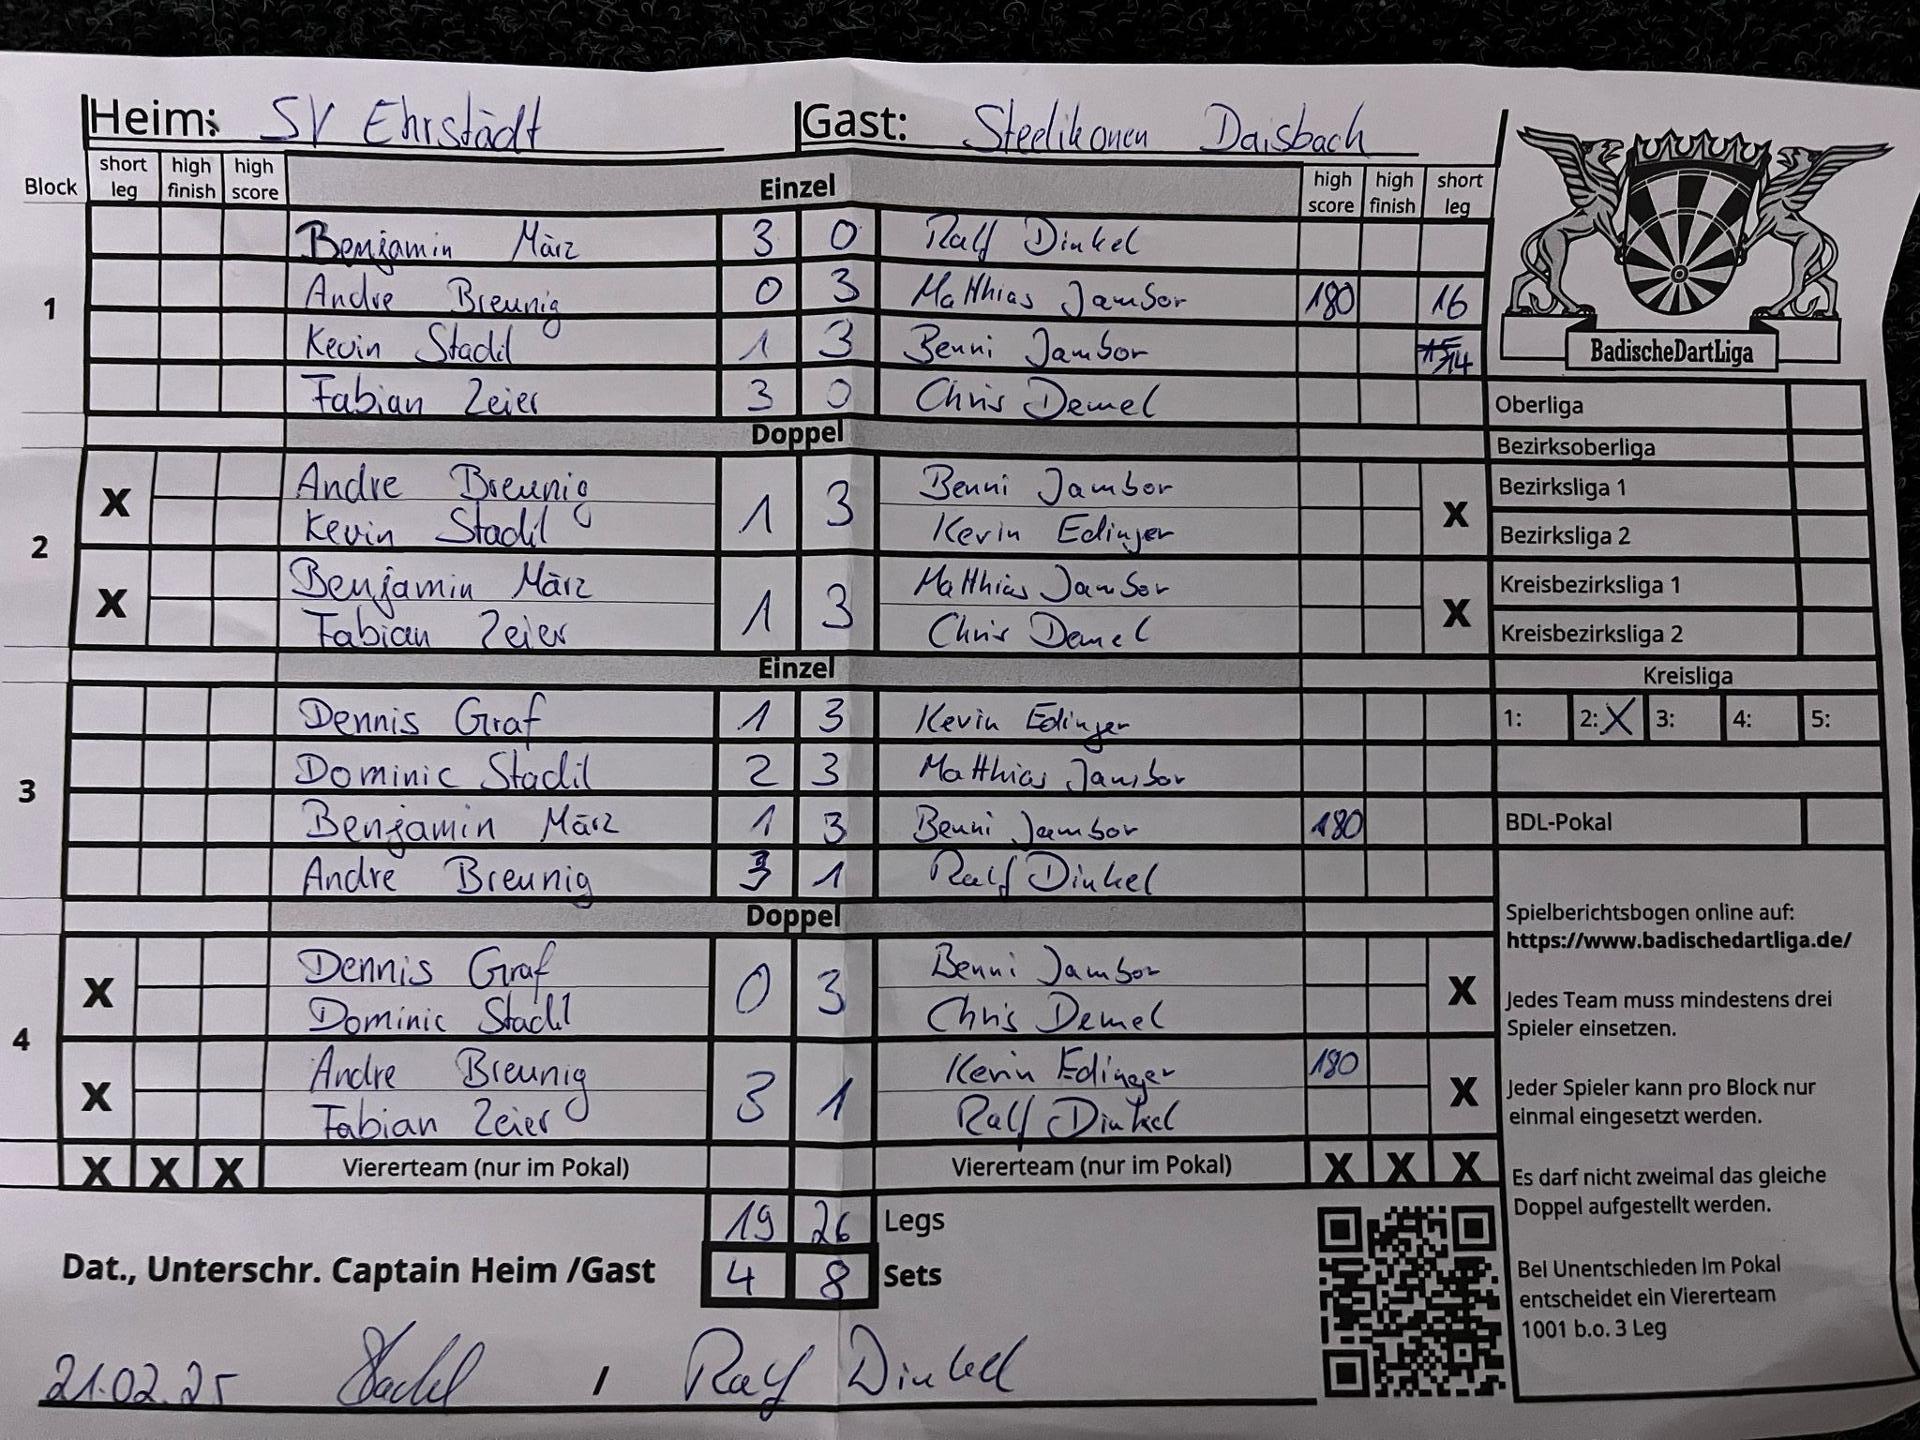 Heim: SV Ehrstädt Gast: Steelikonen Daisbach
Block short leg high finish high score Einzel high score high finish short leg
1
Benjamin März 3 0 Ralf Dinkel
Andre Breunig 0 3 Matthias Jambor 180 16
Kevin Stadil 1 3 Benni Jambor 14
Fabian Zeier 3 0 Chris Demel
BadischeDartLiga
Doppel
2
X Andre Breunig 1 3 Benni Jambor X
Kevin Stadil Kevin Edinger
X Benjamin März 1 3 Matthias Jambor X
Fabian Zeier Chris Demel
Einzel
3
Dennis Graf 1 3 Kevin Edinger
Dominic Stadil 2 3 Matthias Jambor
Benjamin März 1 3 Benni Jambor 180
Andre Breunig 3 1 Ralf Dinkel
Doppel
4
X Dennis Graf 0 3 Benni Jambor X
Dominic Stadil Chris Demel
X Andre Breunig 3 1 Kevin Edinger 180 X
Fabian Zeier Ralf Dinkel
X X X Vierерteam (nur im Pokal) Viererteam (nur im Pokal) X X X
19 26 Legs
4 8 Sets
Dat., Unterschr. Captain Heim /Gast
21.02.25 Stadil / Ralf Dinkel
Oberliga
Bezirksoberliga
Bezirksliga 1
Bezirksliga 2
Kreisbezirksliga 1
Kreisbezirksliga 2
Kreisliga
1: 2: X 3: 4: 5:
BDL-Pokal
Spielberichtsbogen online auf:
https://www.badischedartliga.de/
Jedes Team muss mindestens drei
Spieler einsetzen.
Jeder Spieler kann pro Block nur
einmal eingesetzt werden.
Es darf nicht zweimal das gleiche
Doppel aufgestellt werden.
Bei Unentschieden im Pokal
entscheidet ein Viererteam
1001 b.o. 3 Leg